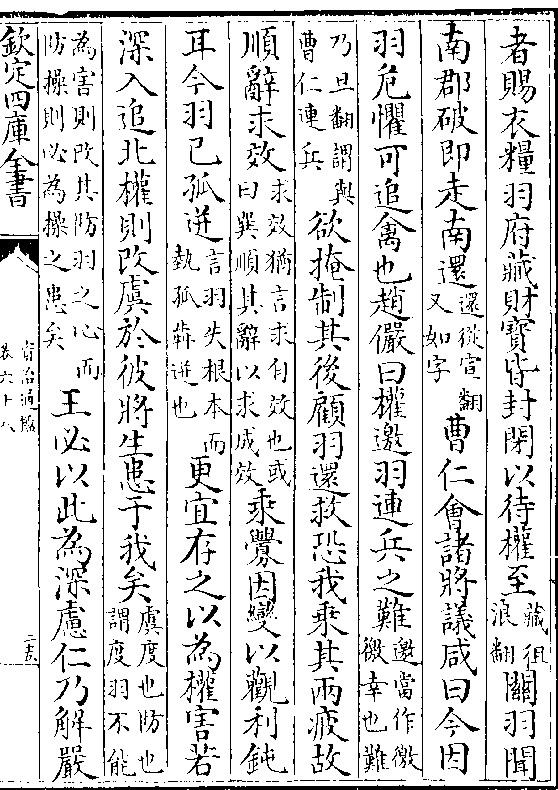 者賜衣糧羽府藏財寶皆封閉以待權至藏徂浪翻關羽聞
南郡破即走南還還從宣翻又如字曹仁會諸將議咸曰今因
羽危懼可追禽也趙儼曰權邀羽連兵之難邀當作徼徼幸也難
乃旦翻謂與曹仁連兵欲掩制其後顧羽還救恐我乘其兩疲故
順辭求效求效猶言求自效也或曰巽順其辭以求成效乘釁因變以觀利鈍
耳今羽已孤迸言羽失根本而埶孤犇迸也更宜存之以為權害若
深入追北權則改虞於彼將生患于我矣虞度也防也謂度羽不能
為害則改其防羽之心而防操則必為操之患矣王必以此為深慮仁乃解嚴
欽定四庫全書
資治通鑑
卷六十八